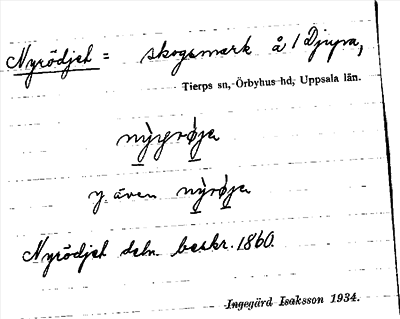 Nyrödjet = skogsmark å 1 Djupa,
Tierps sn, Örbyhus hd, Uppsala län.
nỳrgrøja
y. även nỳrøja
Nyrödjet deln. beskr. 1860.
Ingegärd Isaksson 1934.